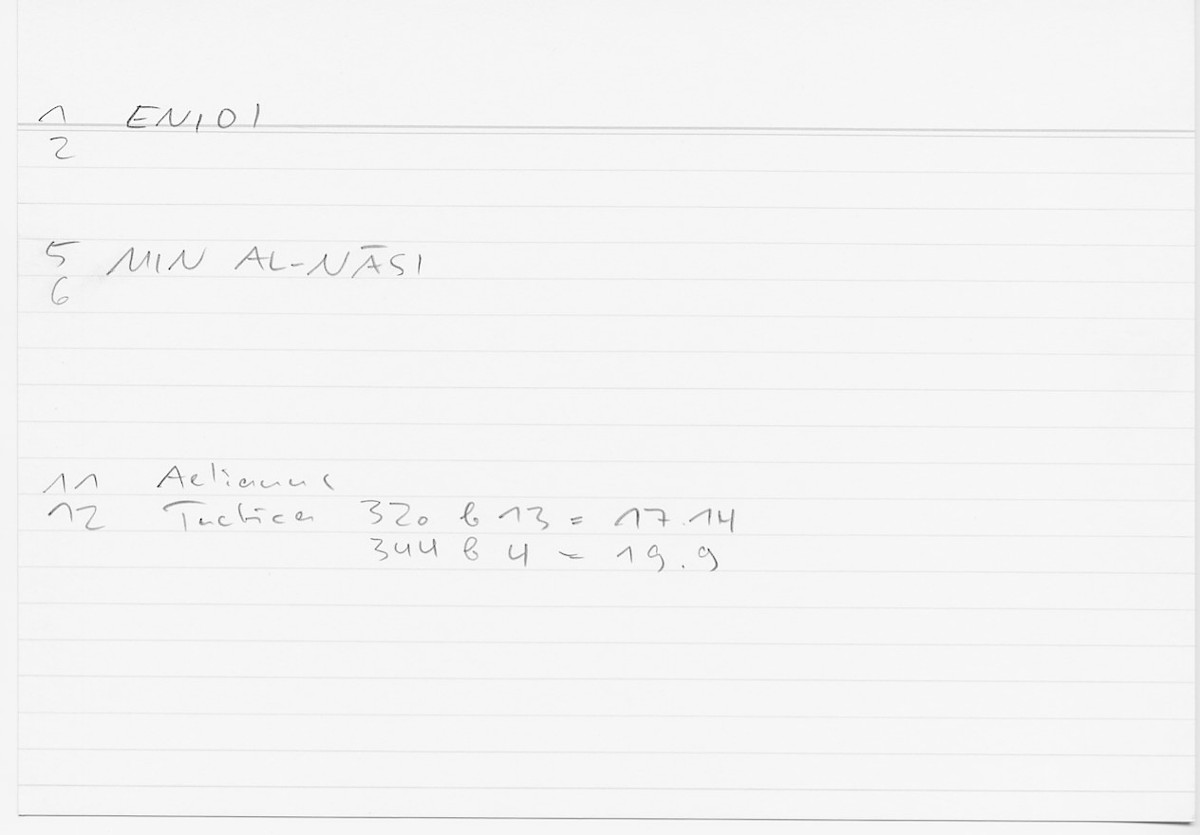 1 ENIOI
2
5 MIN AL-NĀSI
6
11 Aelianus
12 Tactica 320 b 13 = 17.14
344 b 4 = 19.9